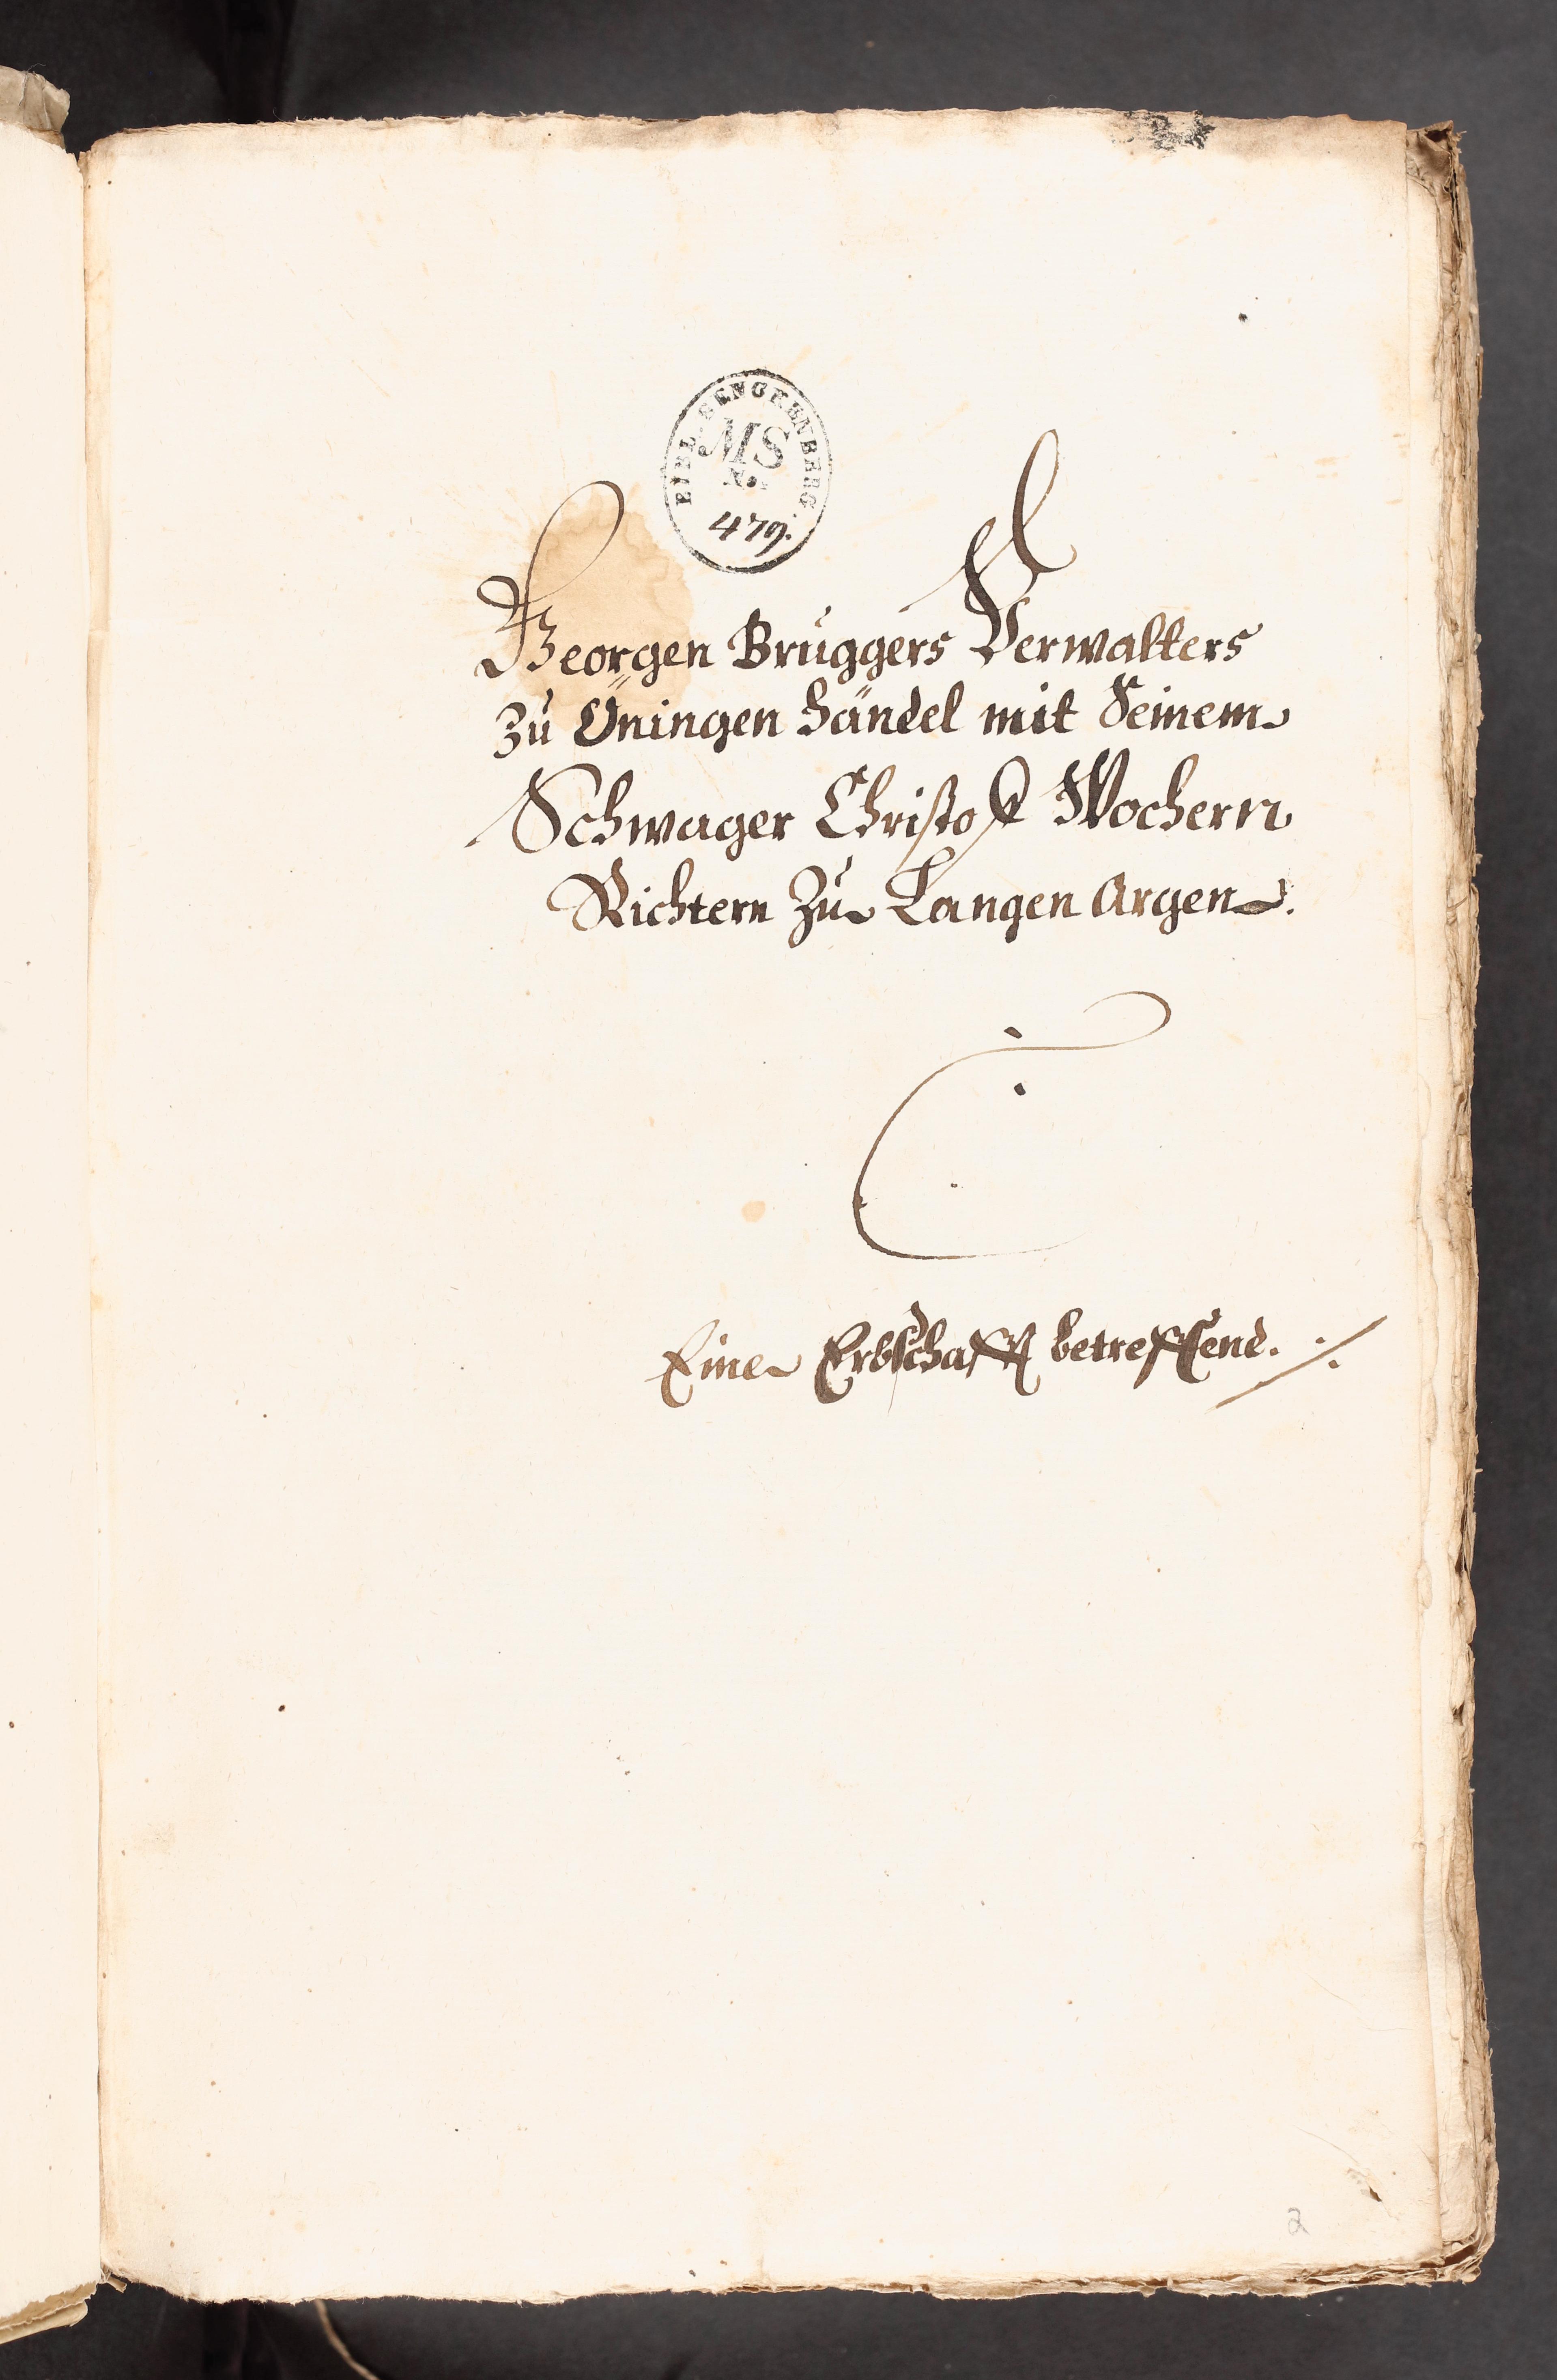 BIBL. SENCKENBERG.
MS
N.
479.
Georgen Bruggers Verwalters
Zu Öningen händel mit Seinem
Schwager Christoff Wochern
Richtern Zu Langen Argen.
Eine Erbschafft betreffend. ./.
2